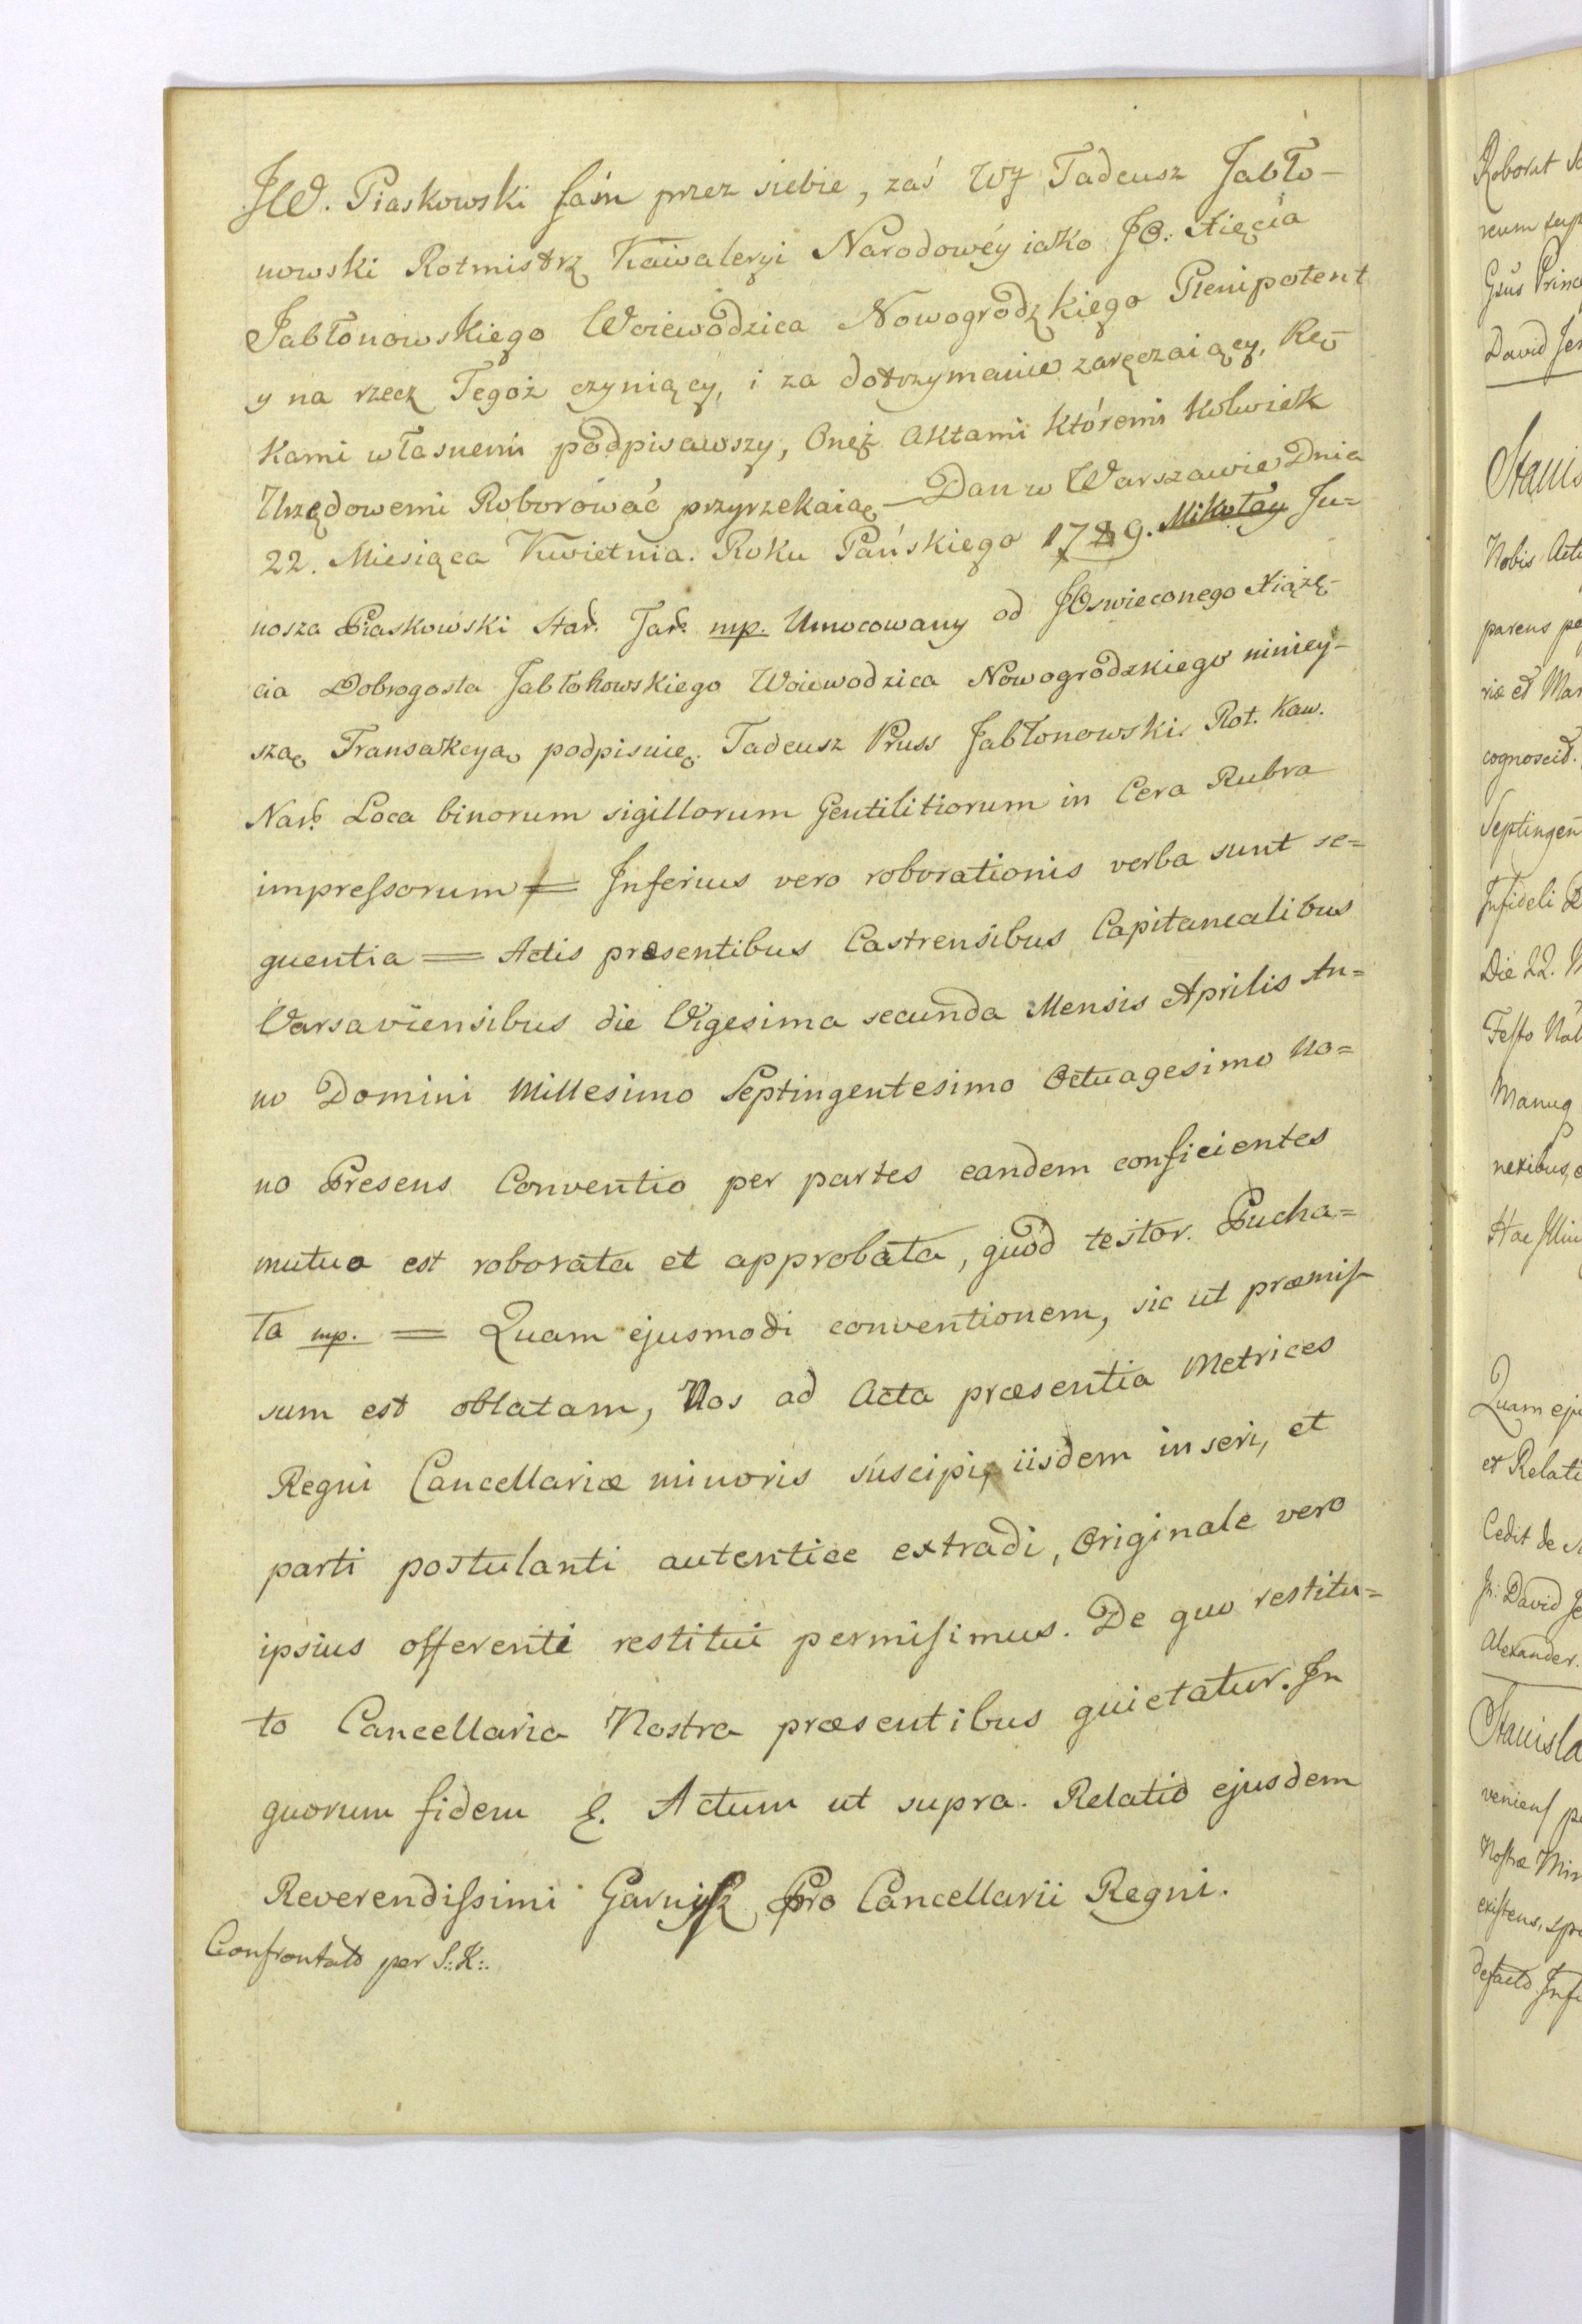 JW. Piaskowski sam przez siebie, zaś WJ Tadeusz Jabło-
nowski Rotmistrz Kawaleryi Narodowéy iako JO: Xięcia
Jabłonowskiego Woiewodzica Nowogrodzkiego Plenipotent
y na rzecz Tegoż czyniący, i za dotrzymanie zaręczaiący, Rę-
kami własnemi podpisawszy, Onęż Aktami któremi kolwiek
Urzędowemi Roborować przyrzekaią — Dan w Warszawie Dnia
22. Miesiąca Kwietnia. Roku Pańskiego 1789. Mikołay Ju-
nosza Piaskowski Star. Tar: mp. Umocowany od JOswieconego Xiążę-
cia Dobrogosta Jabłonowskiego Woiewodzica Nowogrodzkiego niniey-
szą Transakcyą podpisuię. Tadeusz Pruss Jabłonowski Rot. Kaw.
Nar: Loca binorum sigillorum Gentilitiorum in Cera Rubra
impressorum = Inferius vero roborationis verba sunt se=
quentia = Actis præsentibus Castrensibus Capitanealibus
Varsaviensibus die Vigesima secunda Mensis Aprilis An=
no Domini Millesimo Septingentesimo Octuagesimo No=
no Presens Conventio per partes eandem conficientes
mutuo est roborata et approbata, quod testor. Pucha=
ła mp. = Quam ejusmodi conventionem, sic ut præmis-
sum est oblatam, Nos ad Acta præsentia Metrices
Regni Cancellariæ minoris suscipi, iisdem inseri, et
parti postulanti autentice extradi, Originale vero
ipsius offerenti restitui permisimus. De quo restitu=
to Cancellaria Nostra præsentibus quietatur. In
quorum fidem &. Actum ut supra. Relatio ejusdem
Reverendissimi Garnysz Pro Cancellarii Regni.
Confrontató per S.: K:.
Stanis
Nobis
cognoscit.
Die 22.
Quam
Cedit de
Alexander.
Stanisla